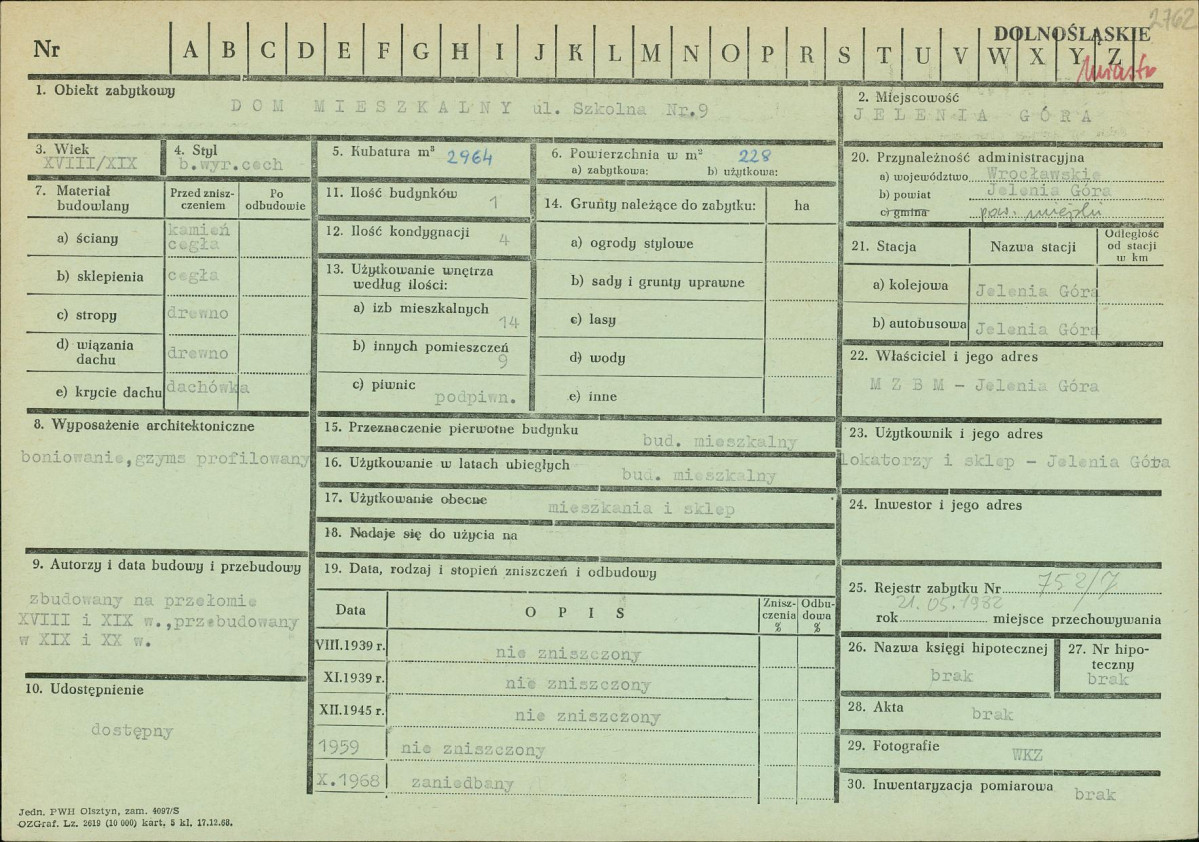 2762
DOLNOŚLĄSKIE
Nr A B C D E F G H I J K L M N O P R S T U V W X Y Z
Miasto
1. Obiekt zabytkowy
DOM MIESZKALNY ul. Szkolna Nr.9
2. Miejscowość
JELENIA GÓRA
3. Wiek
XVIII/XIX
4. Styl
b.wyr.cech
5. Kubatura m³ 2964
6. Powierzchnia w m² 228
a) zabytkowa: b) użytkowa:
20. Przynależność administracyjna
a) województwo Wrocławskie
b) powiat Jelenia Góra
c) gmina pow. miejski
7. Materiał budowlany
Przed zniszczeniem
Po odbudowie
a) ściany kamień cegła
b) sklepienia cegła
c) stropy drewno
d) wiązania dachu drewno
e) krycie dachu dachówka
11. Ilość budynków 1
12. Ilość kondygnacji 4
13. Użytkowanie wnętrza według ilości:
a) izb mieszkalnych 14
b) innych pomieszczeń 9
c) piwnic podpiwn.
14. Grunty należące do zabytku: ha
a) ogrody stylowe
b) sady i grunty uprawne
c) lasy
d) wody
e) inne
21. Stacja Nazwa stacji Odległość od stacji w km
a) kolejowa Jelenia Góra
b) autobusowa Jelenia Góra
22. Właściciel i jego adres
M Z B M - Jelenia Góra
8. Wyposażenie architektoniczne
boniowanie, gzyms profilowany
15. Przeznaczenie pierwotne budynku bud. mieszkalny
16. Użytkowanie w latach ubiegłych bud. mieszkalny
17. Użytkowanie obecne mieszkania i sklep
18. Nadaje się do użycia na
23. Użytkownik i jego adres
lokatorzy i sklep - Jelenia Góra
24. Inwestor i jego adres
9. Autorzy i data budowy i przebudowy
zbudowany na przełomie
XVIII i XIX w., przebudowany
w XIX i XX w.
10. Udostępnienie
dostępny
19. Data, rodzaj i stopień zniszczeń i odbudowy
Data OPIS Zniszczenia % Odbudowa %
VIII.1939 r. nie zniszczony
XI.1939 r. nie zniszczony
XII.1945 r. nie zniszczony
1959 nie zniszczony
X.1968 zaniedbany
25. Rejestr zabytku Nr 752/7
21.05.1982
rok miejsce przechowywania
26. Nazwa księgi hipotecznej
brak
27. Nr hipoteczny
brak
28. Akta brak
29. Fotografie WKZ
30. Inwentaryzacja pomiarowa brak
Jedn. PWH Olsztyn, zam. 4097/S
OZGraf. Lz. 2619 (10 000) kart. 5 kl. 17.12.68.